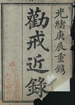 光緒庚辰重鐫
勸戒近錄